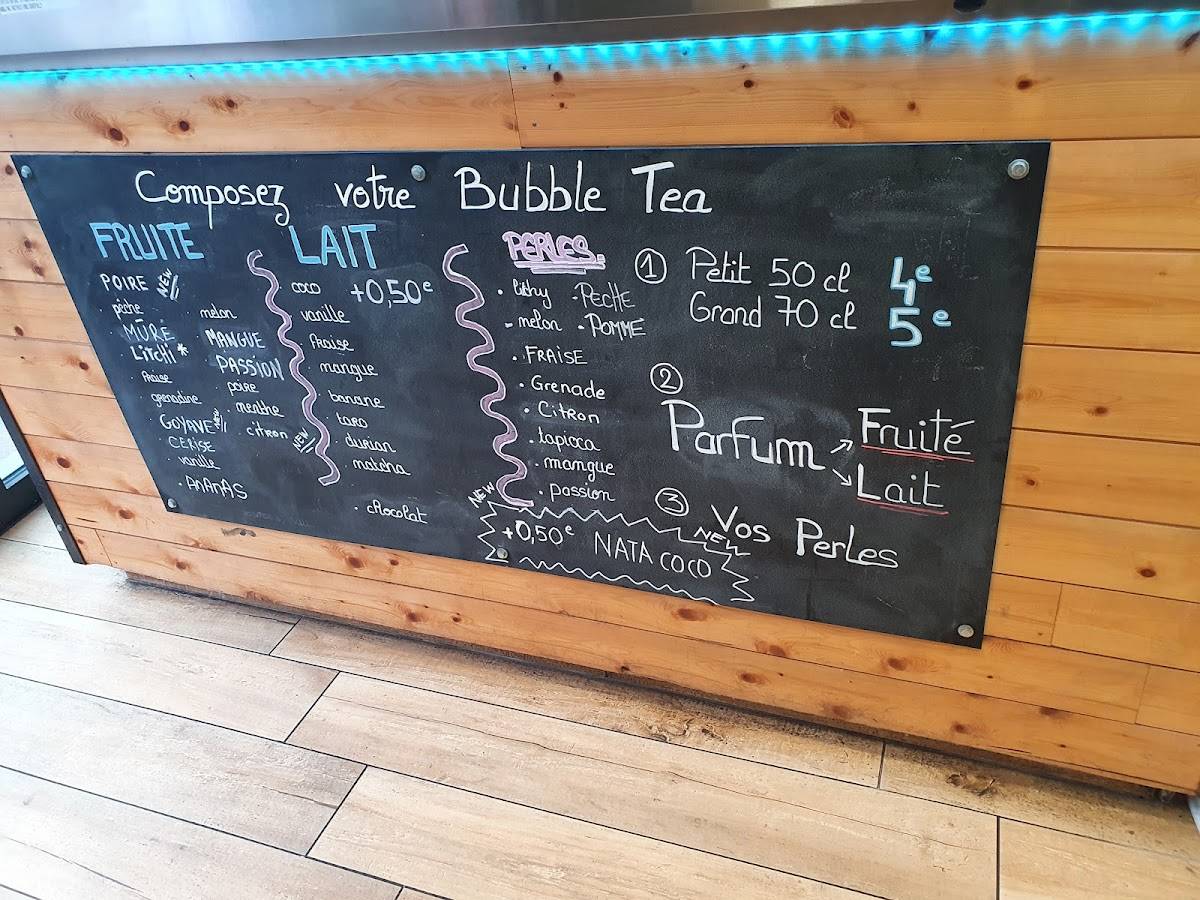 Composez votre Bubble Tea
FRUITE
POIRE NEW
pêche
melon
MÛRE
MANGUE
LITCHI *
PASSION
fraise
poire
grenadine
menthe
GOYAVE NEW
citron NEW
CERISE
vanille
ANANAS
LAIT
+0,50e
coco
vanille
fraise
mangue
banane
taro
durian
matcha
chocolat
PERLES.
lithy
PECHE
melon
POMME
FRAISE
Grenade
Citron
tapioca
mangue
passion
NEW
+0,50e NATA COCO
NEW
① Petit 50 cl 4e
Grand 70 cl 5e
②
Parfum Fruité
Lait
③ Vos Perles